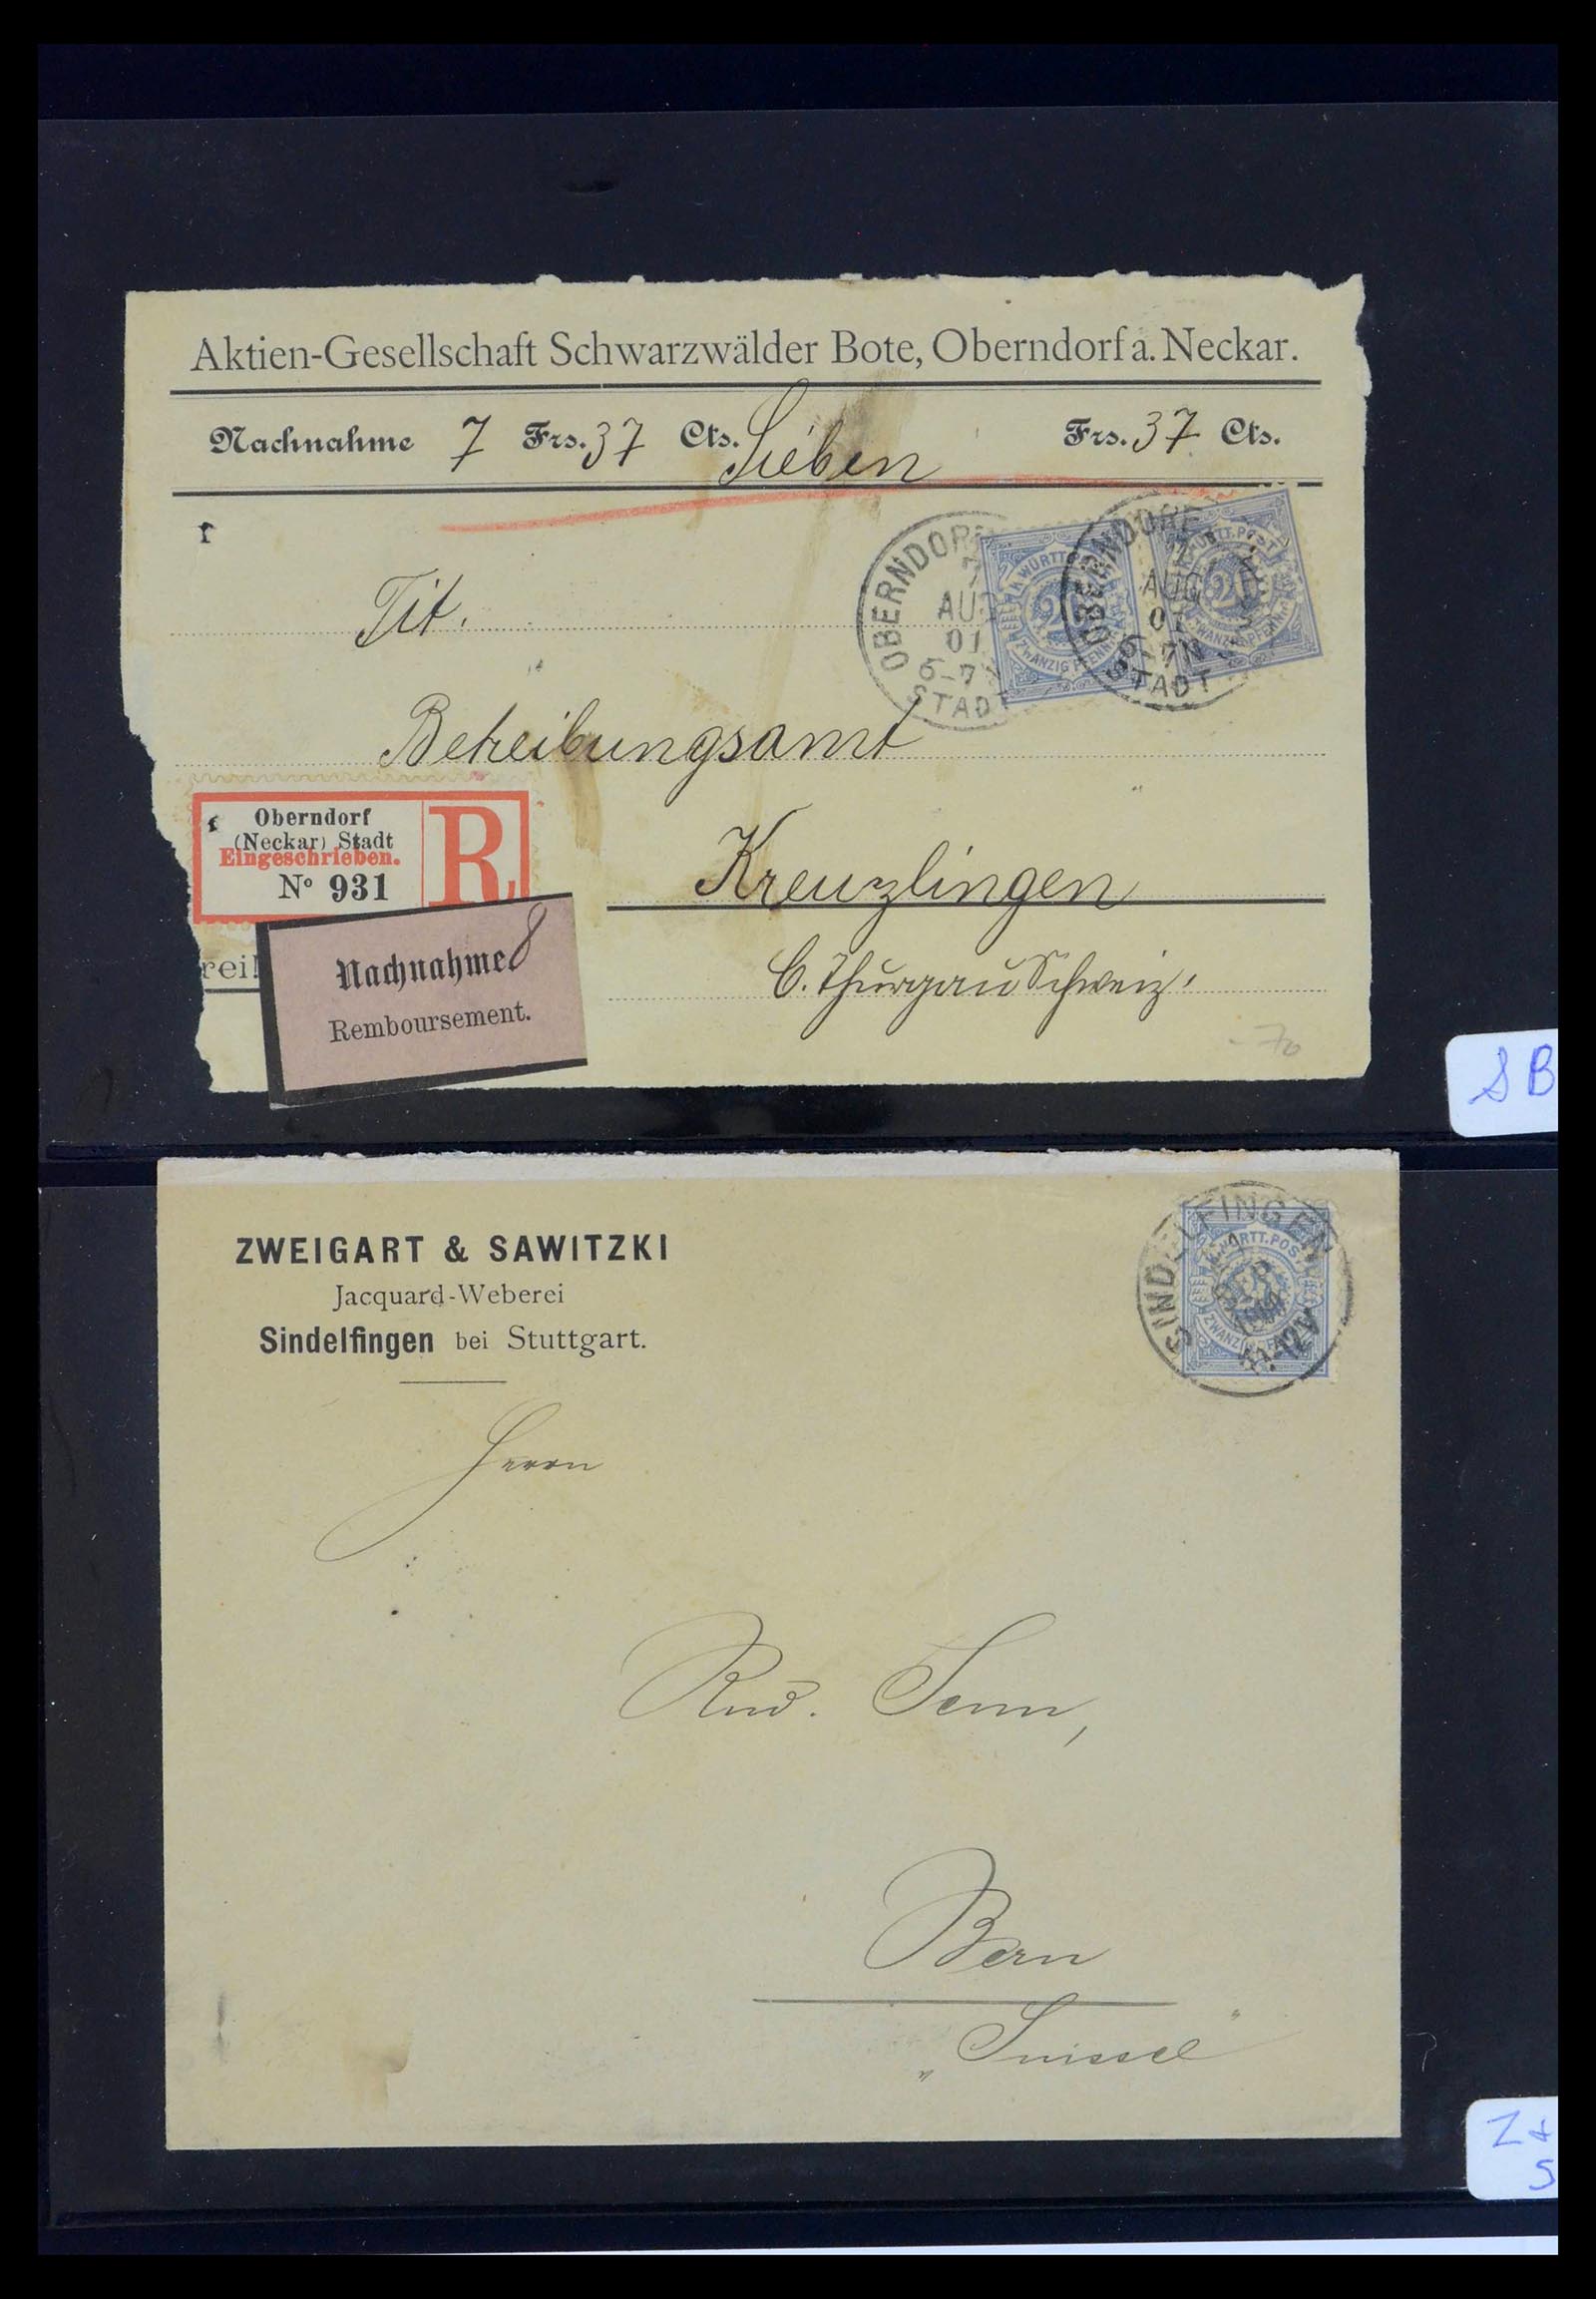 Aktien-Gesellschaft Schwarzwälder Bote, Oberndorf a. Neckar.
Nachnahme 7 Frs. 37 Cts. Sieben Frs. 37 Cts.
OBERNDORF
7
AUG
01
6-7
STADT
K. WÜRTT. POST
20
ZWANZIG PFENNIG
OBERNDORF
7
AUG
01
6-7N
STADT
K. WÜRTT. POST
20
ZWANZIG PFENNIG
Tit.
Betreibungsamt
Oberndorf
(Neckar) Stadt
Eingeschrieben.
No 931
R
Kreuzlingen
Nachnahme
Remboursement.
C. Thurgau Schweiz.
- 70
SB
ZWEIGART & SAWITZKI
Jacquard-Weberei
Sindelfingen bei Stuttgart.
SINDELFINGEN
11-12V
K. WÜRTT. POST
ZWANZIG
Herrn
Rud. Senn,
Bern
"Suisse"
Z+
S